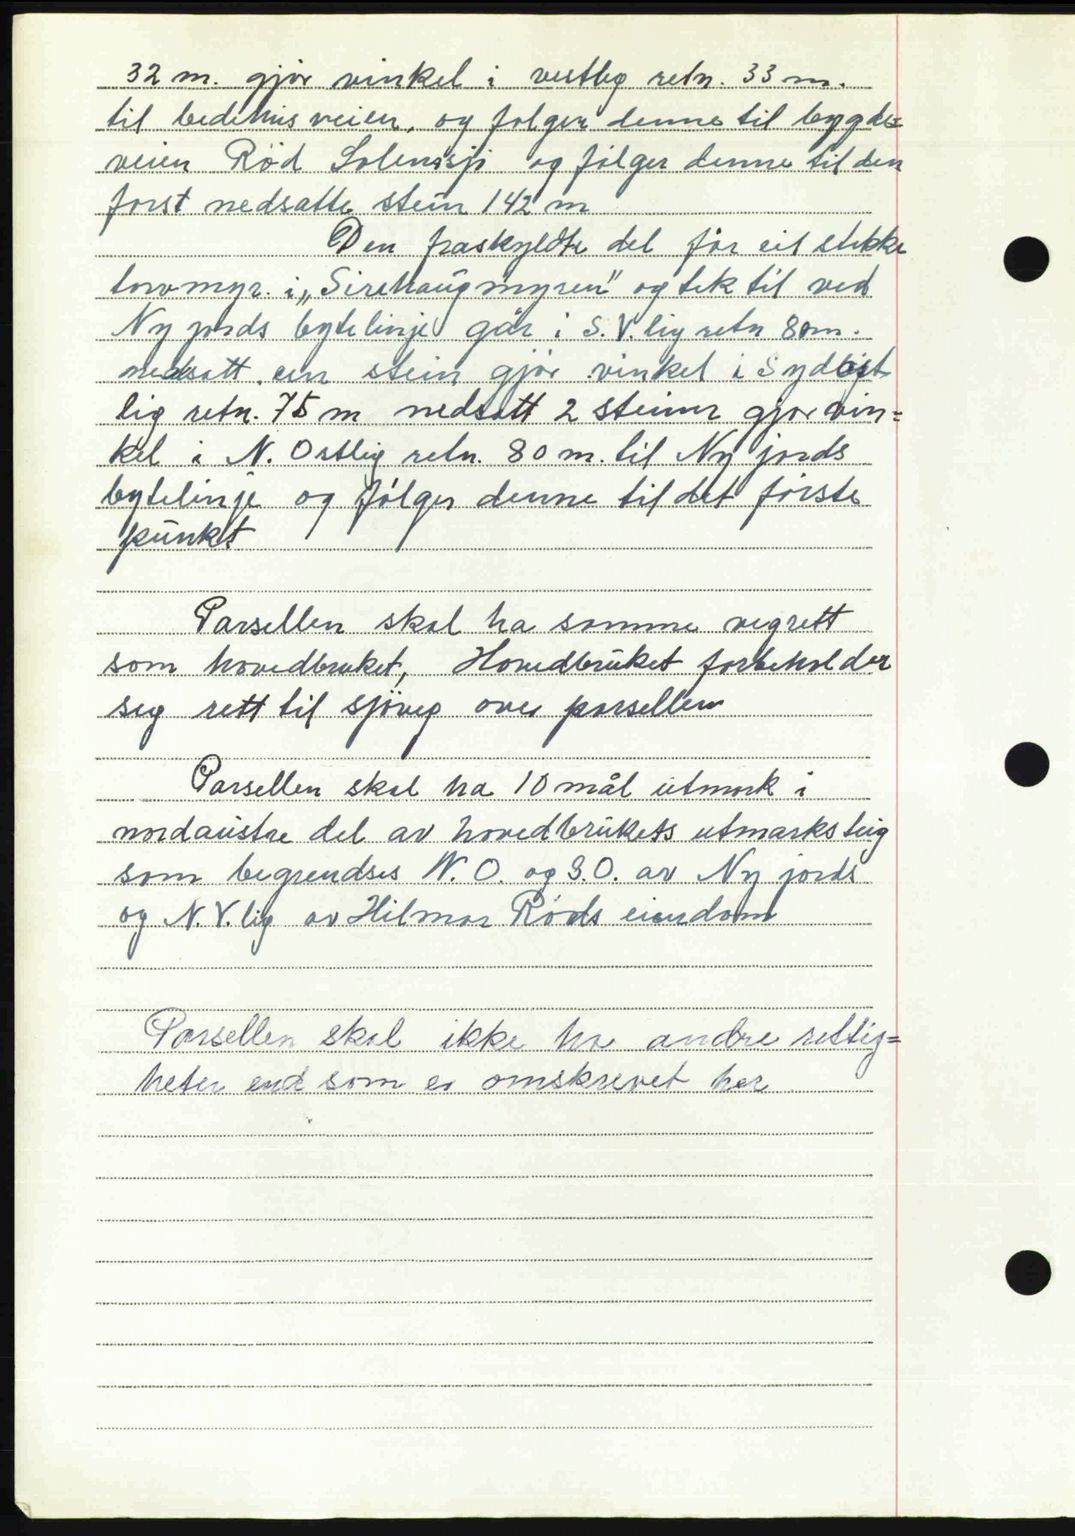 32 m. gjör vinkel i vestlig retn. 33 m.
til bedehusveien, og følger denne til bygde=
veien Rød Solemsjö og følger denne til den
først nedsatte stein 142 m
Den fraskyldte del får eit stikke
torvmyr. i „Sirehaugmyren" og tek til ved
Ny jords bytelinje går i S.V.lig retn 80 m.
nedsatt en stein gjör vinkel i Sydöst
lig retn. 75 m nedsatt 2 steiner gjør vin=
kel i N. Ostlig retn. 80 m. til Ny jords
bytelinje og følger denne til det förste
punkt
Parsellen skal ha samme vegrett
som hovedbruket, Hovedbruket forbeholder
seg rett til sjöveg over parsellen
Parsellen skal ha 10 mål utmark i
nordaustre del av hovedbrukets utmarksteig
som begrendses N.O. og S.O. av Ny jords
og N.V.lig av Hilmar Røds eiendom
Parsellen skal ikke ha andre rettig=
heter end som er omskrevet her